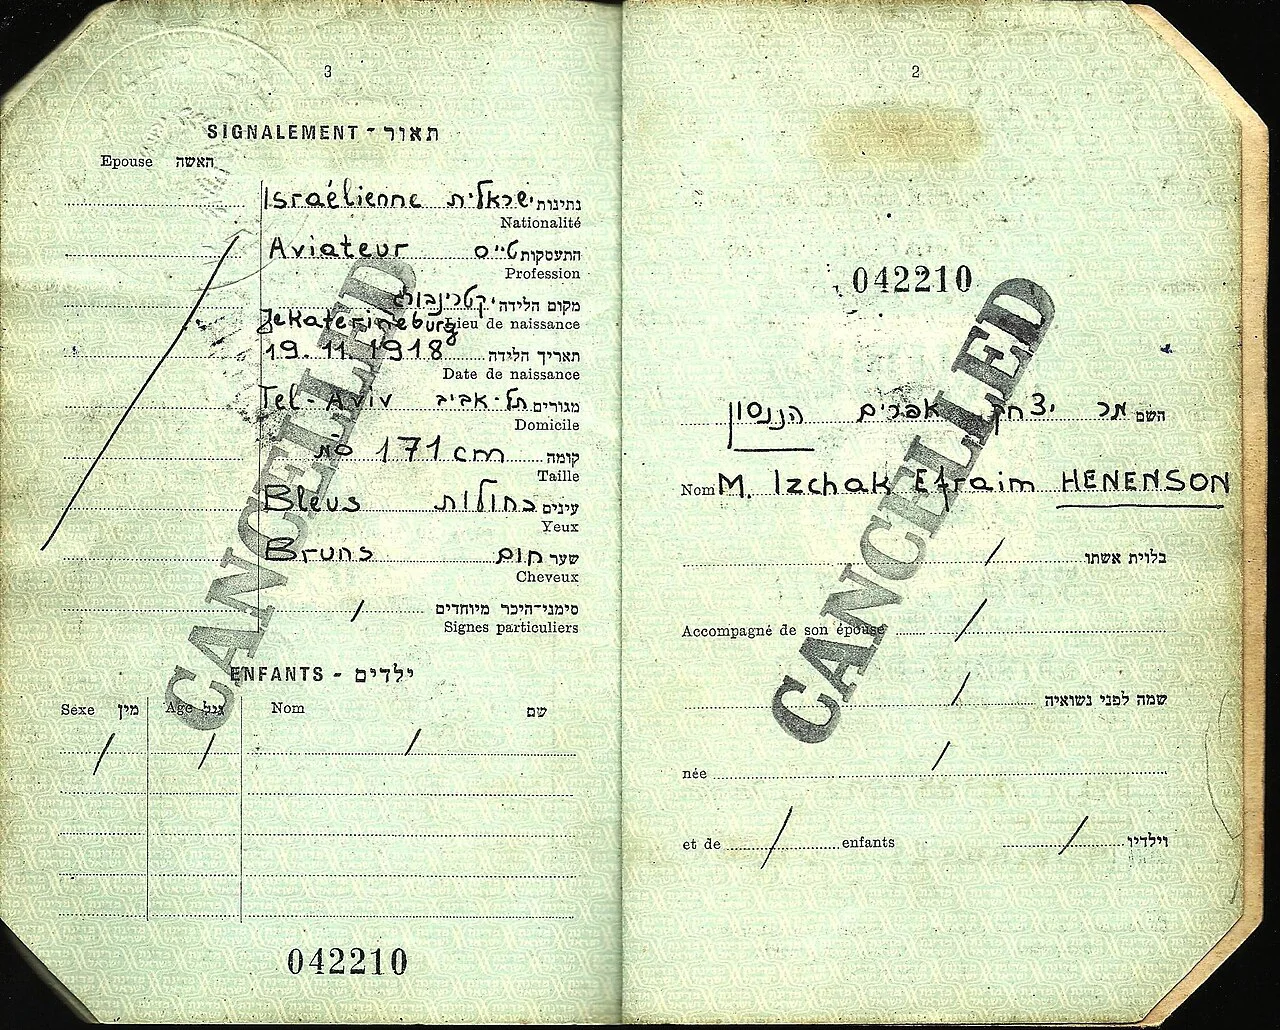 3
SIGNALEMENT - תאור
Epouse האשה
Israélienne ישראלית נתינות
Nationalité
Aviateur טייס התעסקות
Profession
יקטרינבורג מקום הלידה
Jekaterineburg Lieu de naissance
19.11.1918 תאריך הלידה
Date de naissance
Tel-Aviv תל-אביב מגורים
Domicile
171 cm קומה
Taille
Bleus כחולות עינים
Yeux
Bruns חום שער
Cheveux
/ סימני-היכר מיוחדים
Signes particuliers
ENFANTS - ילדים
Sexe מין Age גיל Nom שם
/ / /
042210
CANCELLED
2
042210
השם מר יצחק אפרים הננסון
Nom M. Izchak Efraim HENENSON
בלוית אשתו /
Accompagné de son épouse /
שמה לפני נשואיה /
née /
et de / enfants / וילדיו
CANCELLED